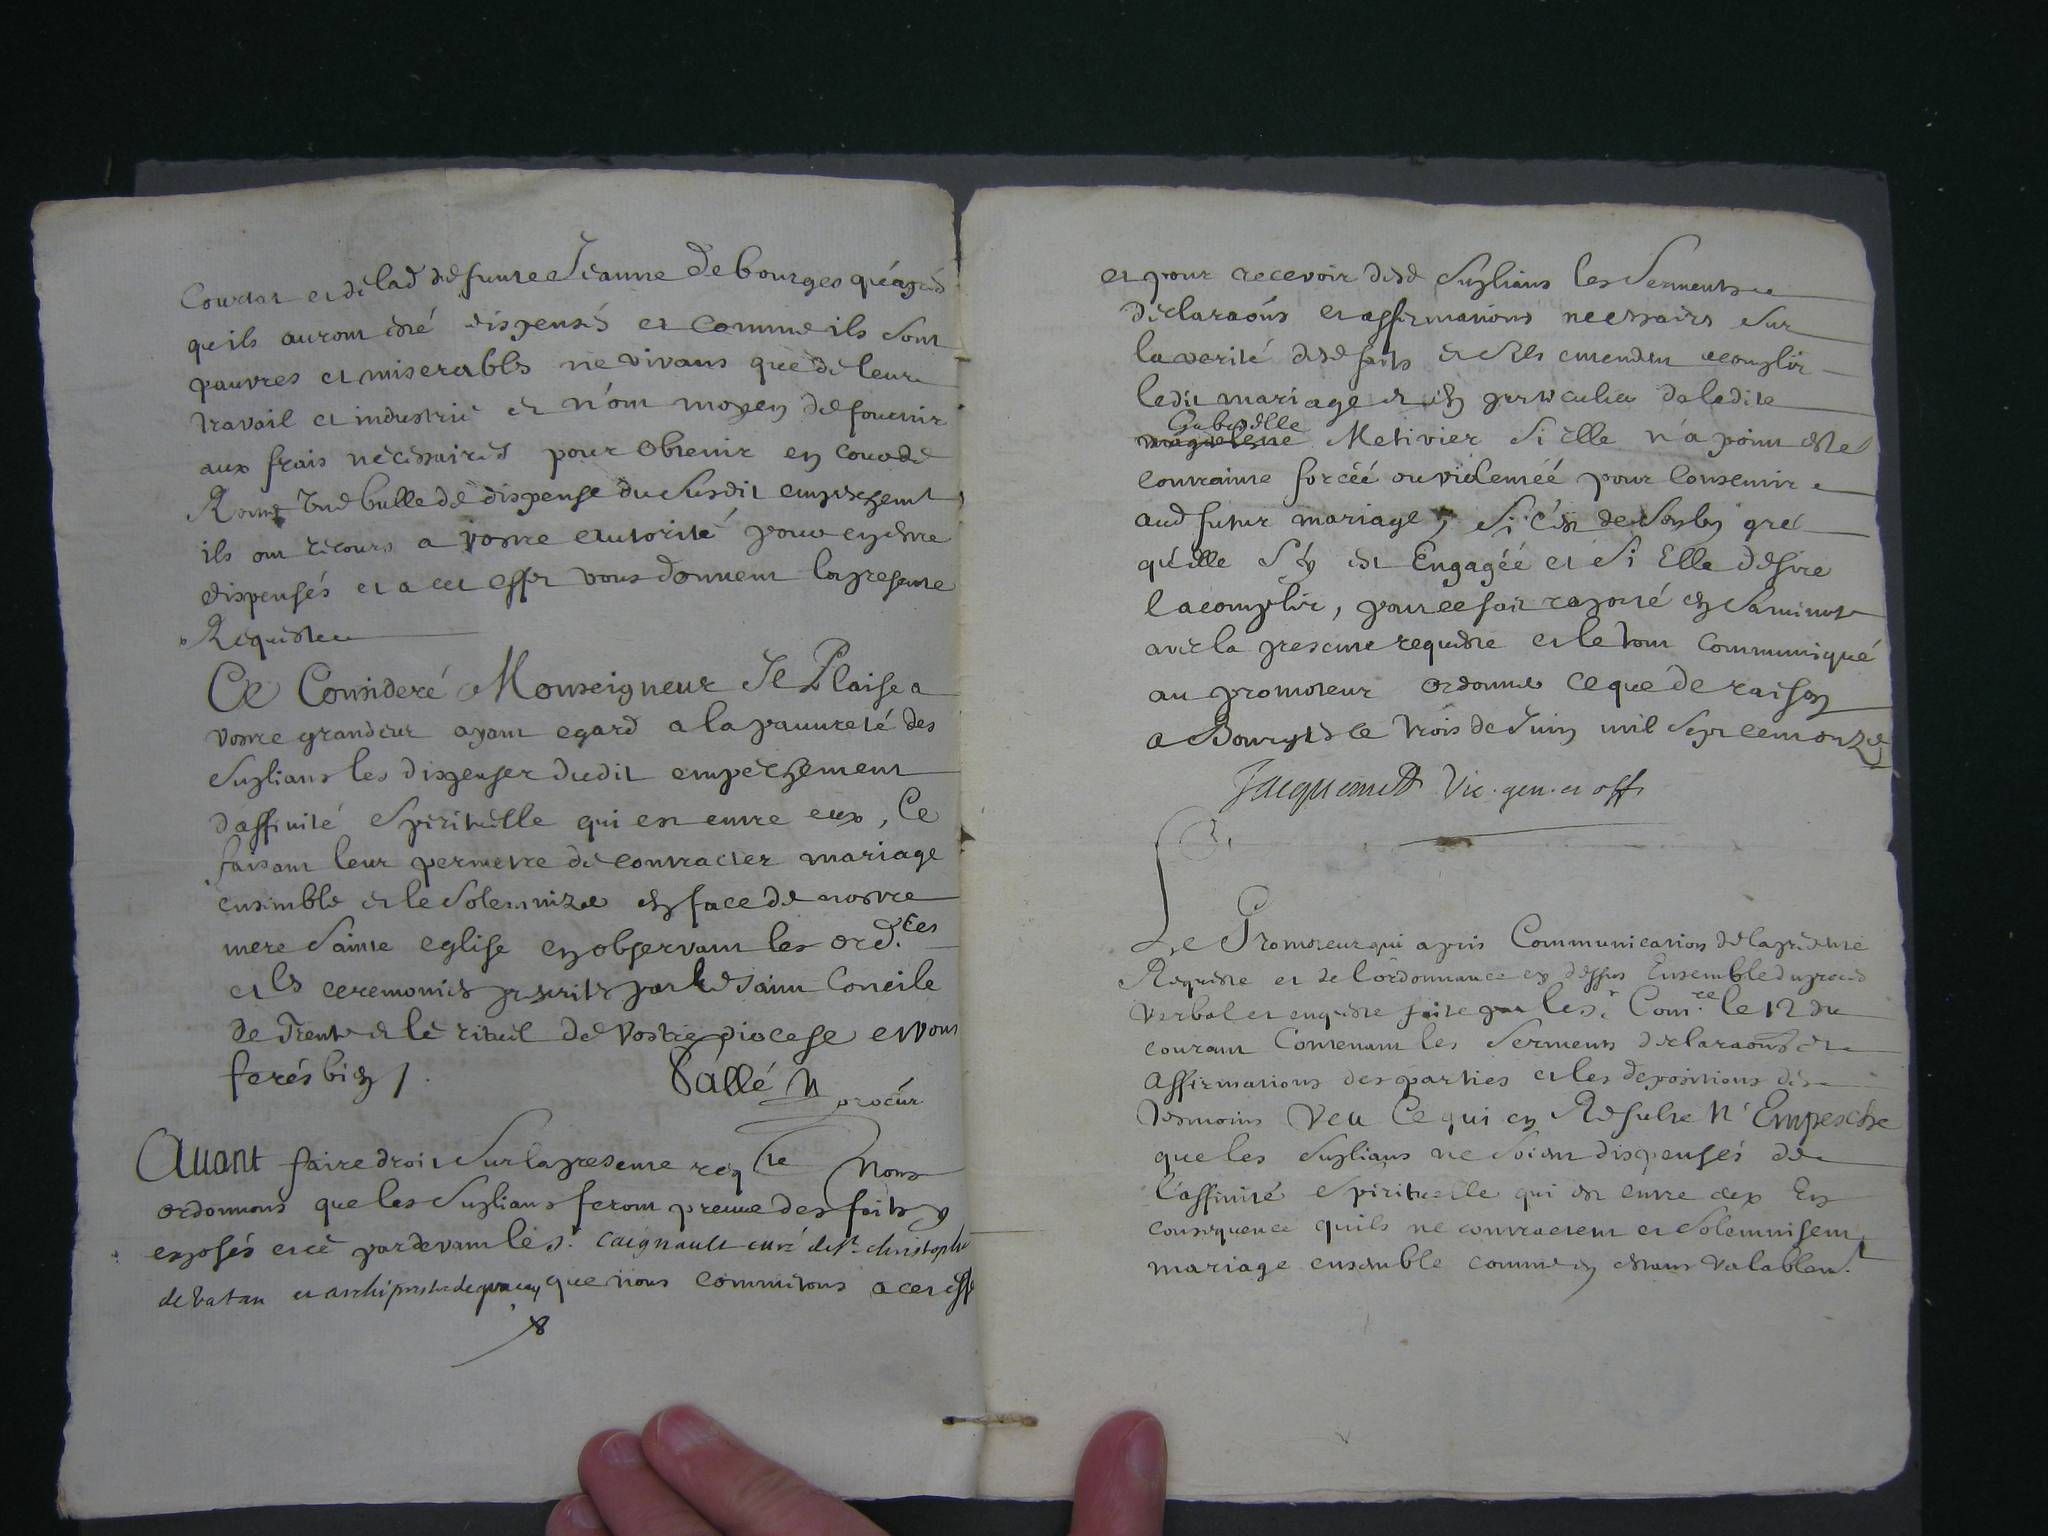 Courtat et de lad defunte Jeanne Debourges qu'apres
qu'ils auront esté dispensés et comme ils sont
pauvres et miserables ne vivans que de leur
travail et industrie et n'ont moyen de fournir
aux frais necessaires pour obtenir en cour de
Rome une bulle de dispense du susdit empeschemt
ils ont recours a vostre autorité pour en estre
dispensés et a cet effet vous donnent la presente
Requeste
Ce Consideré Monseigneur Il Plaise a
vostre grandeur ayant egard a la pauvreté des
suplians les dispenser dudit empeschement
d'affinité spirituelle qui est entre eux, Ce
faisant leur permetre de contracter mariage
ensemble et le solemnizer en face de nostre
mere sainte eglise en observant les ord.ces
et les ceremonies prescrites par le saint Concile
de Trente et le rituel de vostre diocese et vous
ferés bien /.
Vallé
procúr
Avant faire droit sur la presente reqte Nous
ordonnons que les suplians feront preuve des faits y
exposés et ce pardevant le sr. Caignault curé de st. christophe
de vatan et archiprestre de que nous commetons a cet eff
et pour recevoir desd suplians les serments
declaraons et affirmations necessaires sur
la verité desd faits et s'ils entendent acomplir
ledit mariage et en particulier de ladite
Gabrielle
Metivier si elle n'a point esté
contrainte forcéé ou violentéé pour consentir
aud futur mariage, si c'est de son bon gré
qu'elle s'y est Engagéé et si Elle desire
l'acomplir, pour ce fait raporté en sa minute
avec la presente requeste et le tout communiqué
au promoteur ordonner ce que de raison
a Bourges ce trois de Juin mil sept cent onze
Jacquemet Vic. gen. et off
Le Promoteur qui a pris Communication de la presente
Requeste et de l'ordonnance cy dessus Ensemble du proces
verbal et enqueste faite par le sr. Com.re le 12 du
courant Contenant les serments declaraons et
affirmations des parties et les depositions des
tesmoins Veu Ce qui en Resulte N'Empesche
que les suplians ne soient dispensés de
l'affinité spirituelle qui est entre eux En
consequence qu'ils ne contractent et solemnisent
mariage ensemble comme en estans valablemt